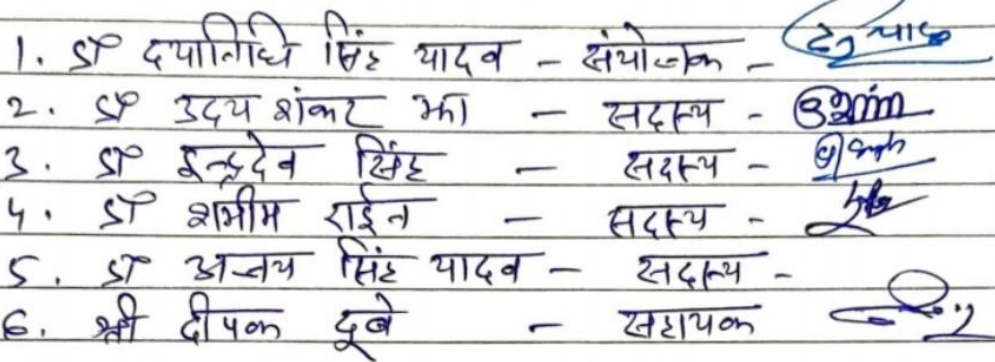 1. डॉ दयानिधि सिंह यादव - संयोजक -
2. डॉ उदय शंकर झा - सदस्य -
3. डॉ इन्द्रदेव सिंह - सदस्य -
4. डॉ शमीम राईन - सदस्य -
5. डॉ अन्जय सिंह यादव - सदस्य -
6. श्री दीपक दूबे - सहायक